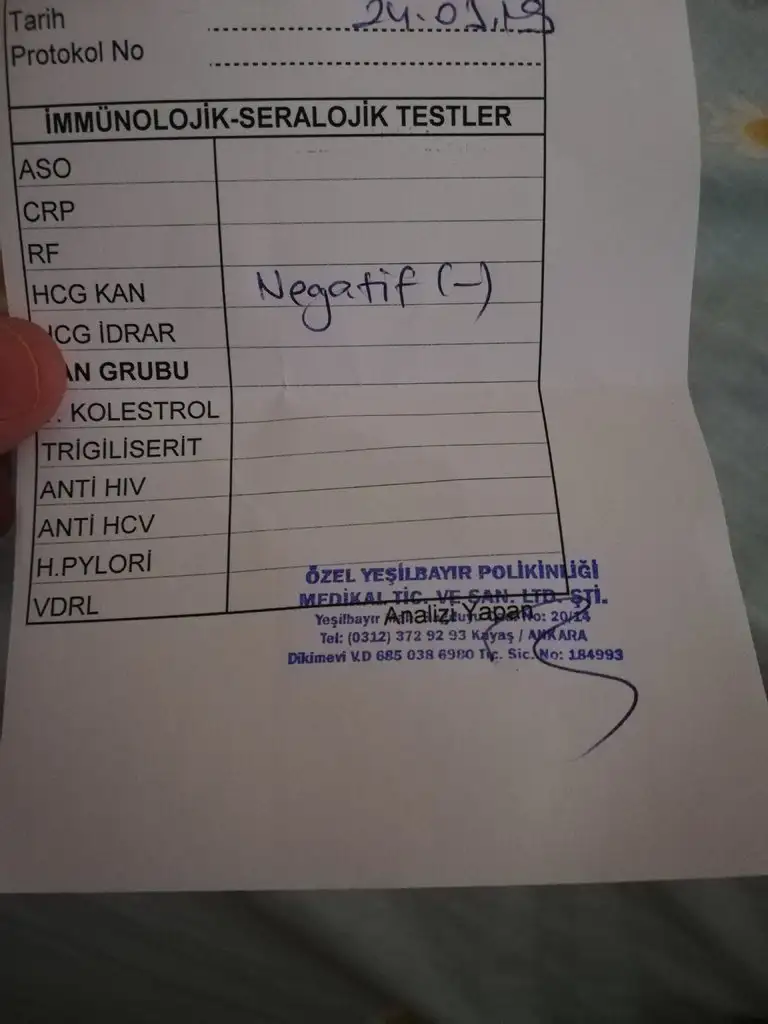 Tarih 24.01.19
Protokol No
İMMÜNOLOJİK-SERALOJİK TESTLER
ASO
CRP
RF
HCG KAN Negatif (-)
CG İDRAR
AN GRUBU
. KOLESTROL
TRİGİLİSERİT
ANTİ HIV
ANTİ HCV
H.PYLORİ
VDRL
ÖZEL YEŞİLBAYIR POLİKİNLİĞİ
MEDİKAL TİC. VE SAN. LTD. ŞTİ.
Analizi Yapan
Yeşilbayır No: 20/14
Tel: (0312) 372 92 93 Kayaş / ANKARA
Dikimevi V.D 685 038 6980 Tic. Sic. No: 184993